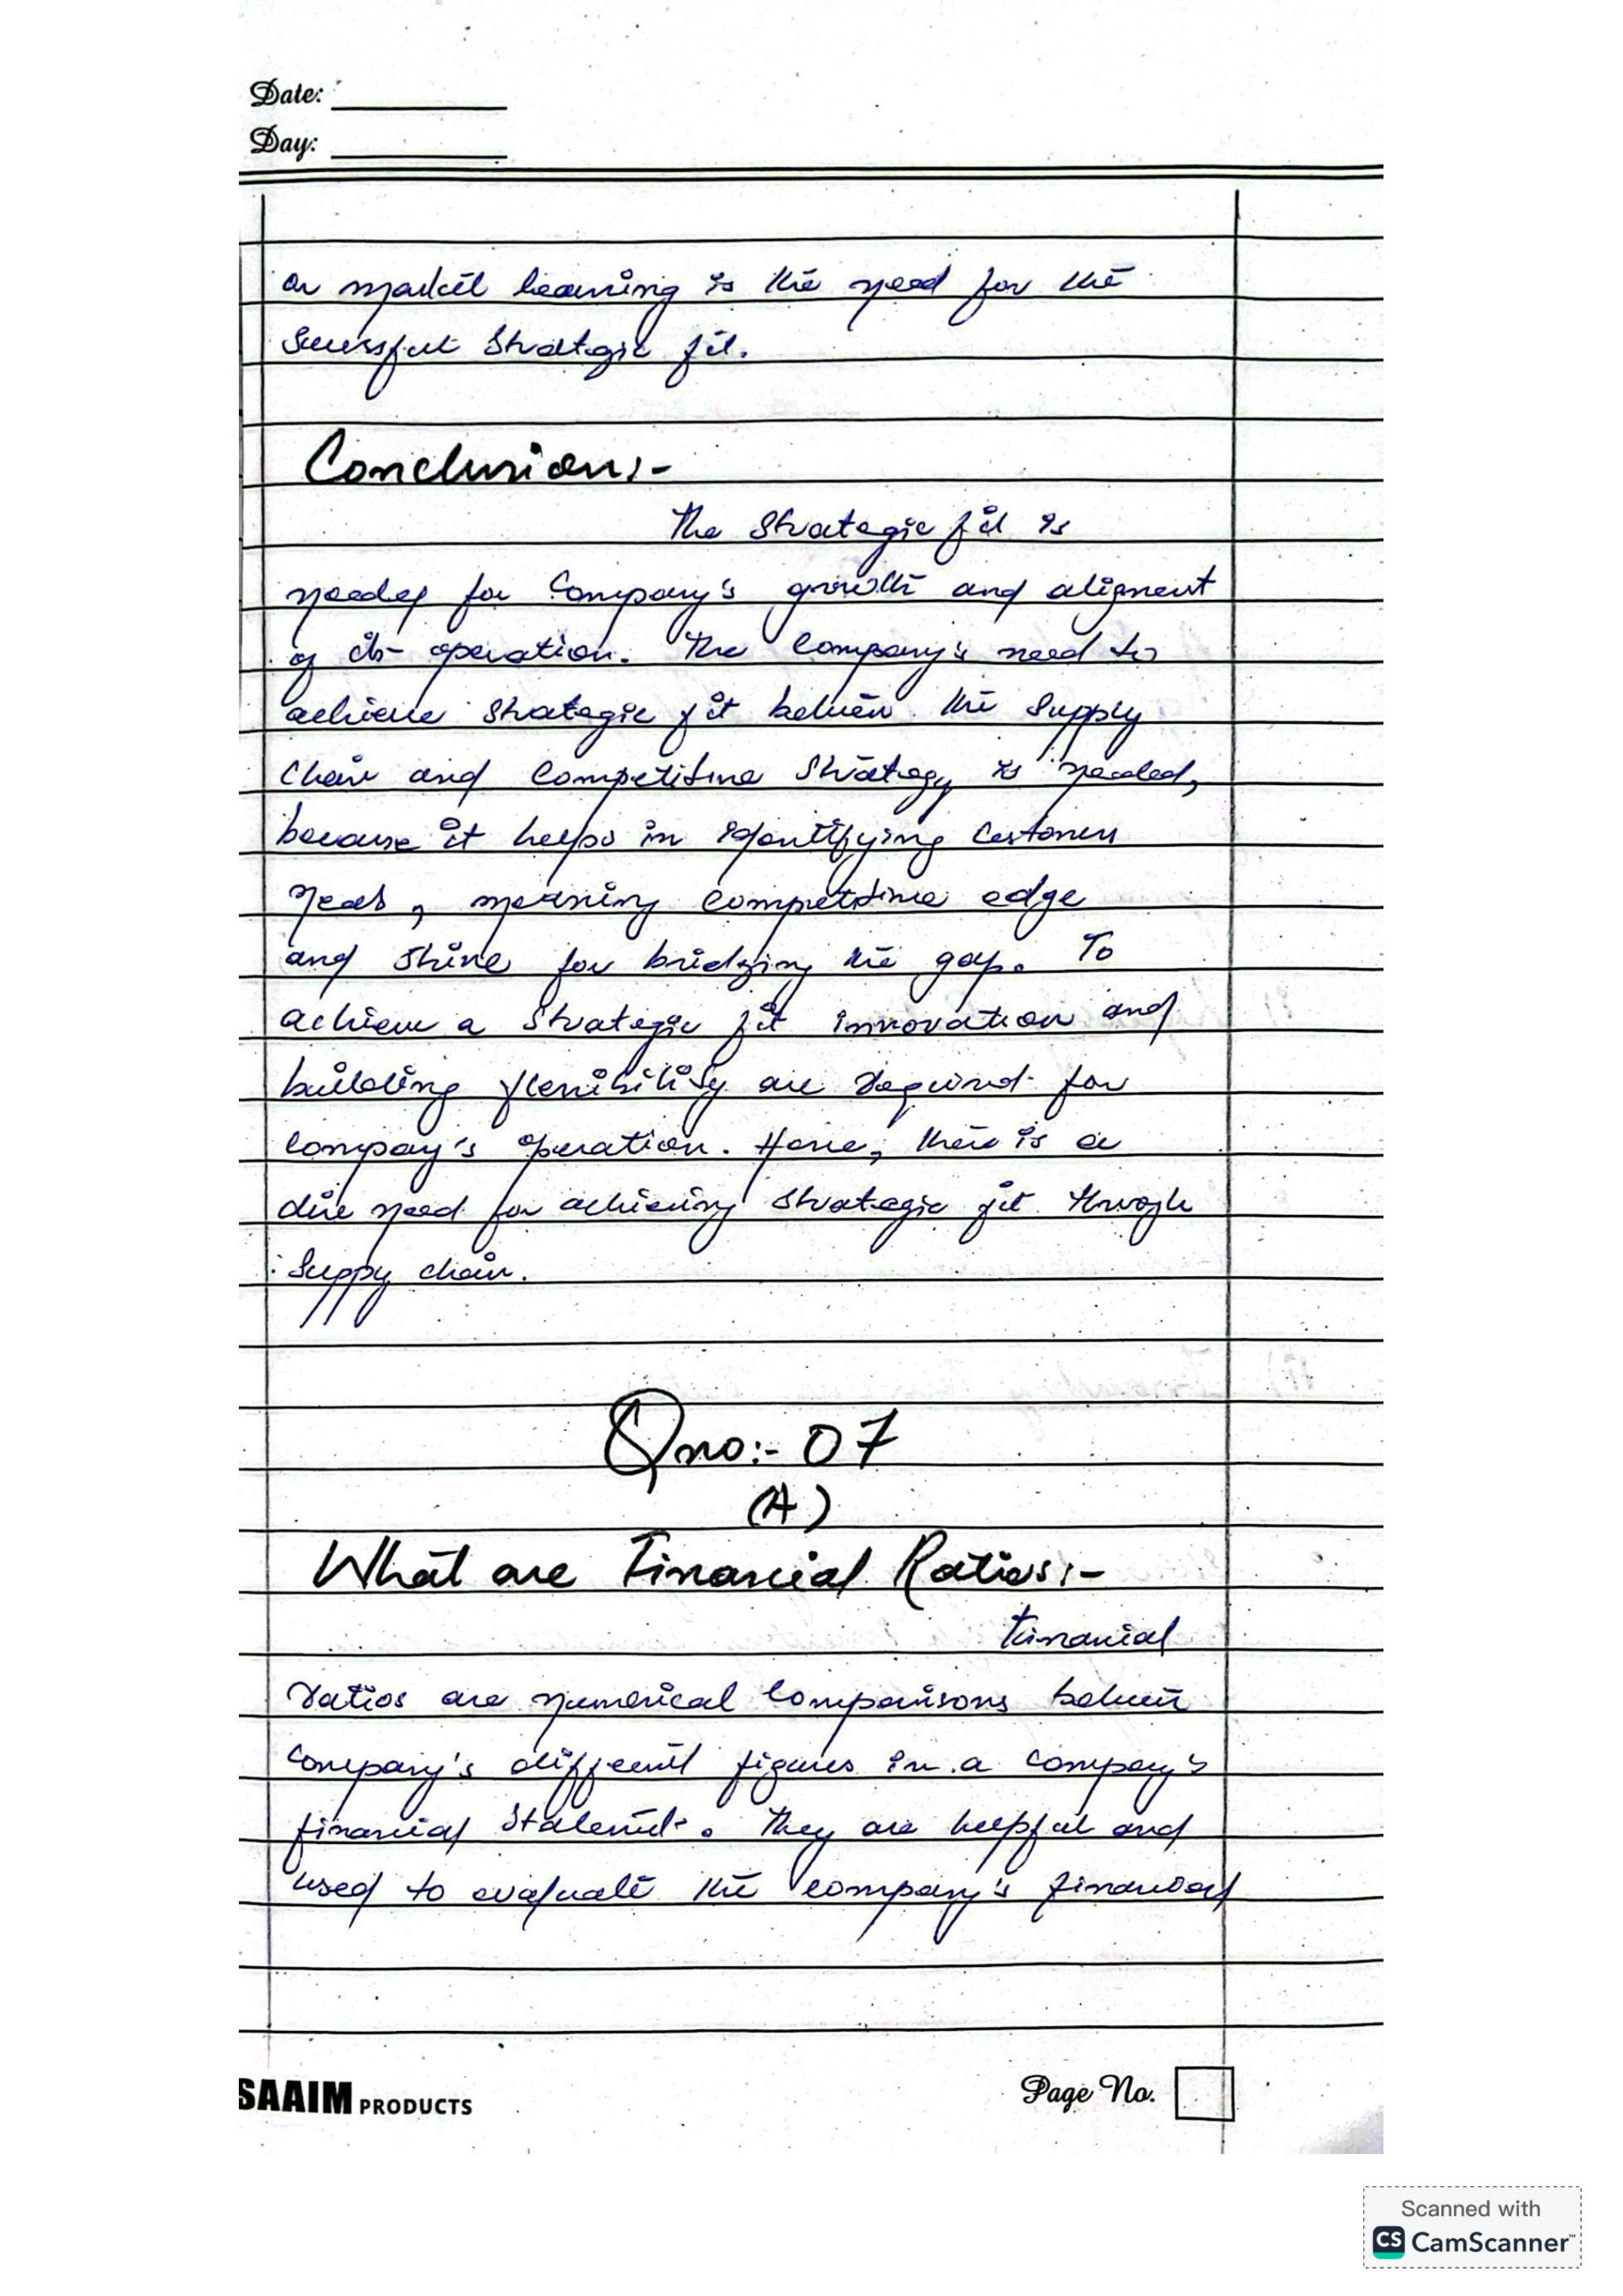 Date:
Day:
or market learning is the need for the
Sucessful Strategic fit.
Conclusion:-
The Strategic fit is
needed for Company's growth and aligment
of its operation. The Company's need to
achieve strategic fit between the Supply
Chain and Competitive Strategy is needed,
because it helps in identifying Customers
Needs, meaning competitive edge
and shine for bridging the gap. To
achieve a Strategic fit innovation and
building flexibility are required for
Company's operation. Hence, there is a
dire need for achieving strategic fit through
Suppy chain.
Qno:- 07
(A)
What are Financial Ratios:-
Financial
ratios are numerical Comparisons between
Company's different figures in a company's
financial Statements. They are helpful and
used to evaluate the company's financial
SAAIM PRODUCTS
Page No.
Scanned with
CS CamScanner™